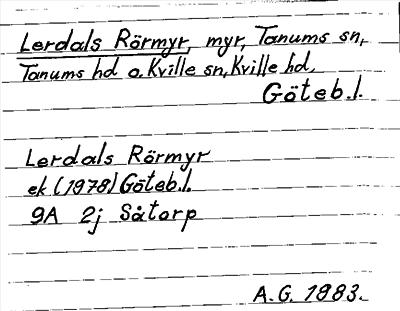 Lerdals Rörmyr, myr, Tanums sn,
Tanums hd o. Kville sn, Kville hd,
Göteb.l.
Lerdals Rörmyr
ek (1978) Göteb.l.
9A 2j Såtorp
A.G. 1983.